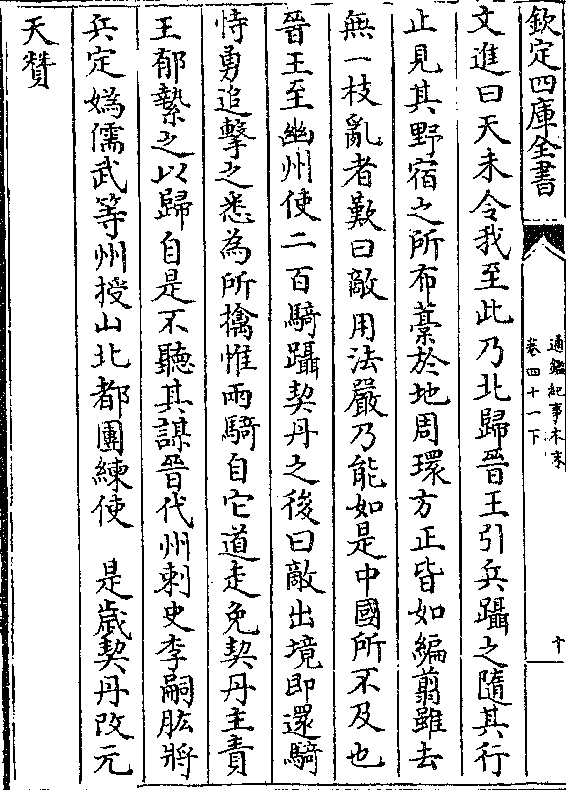 欽定四庫全書
通鑑紀事本末
卷四十一下
十
文進曰天未令我至此乃北歸晉王引兵躡之隨其行
止見其野宿之所布藁於地周環方正皆如編翦雖去
無一枝亂者歎曰敵用法嚴乃能如是中國所不及也
晉王至幽州使二百騎躡契丹之後曰敵出境即還騎
恃勇追擊之悉為所擒惟兩騎自它道走免契丹主責
王郁縶之以歸自是不聽其謀晉代州刺史李嗣肱將
兵定媯儒武等州授山北都團練使　是歲契丹改元
天贊